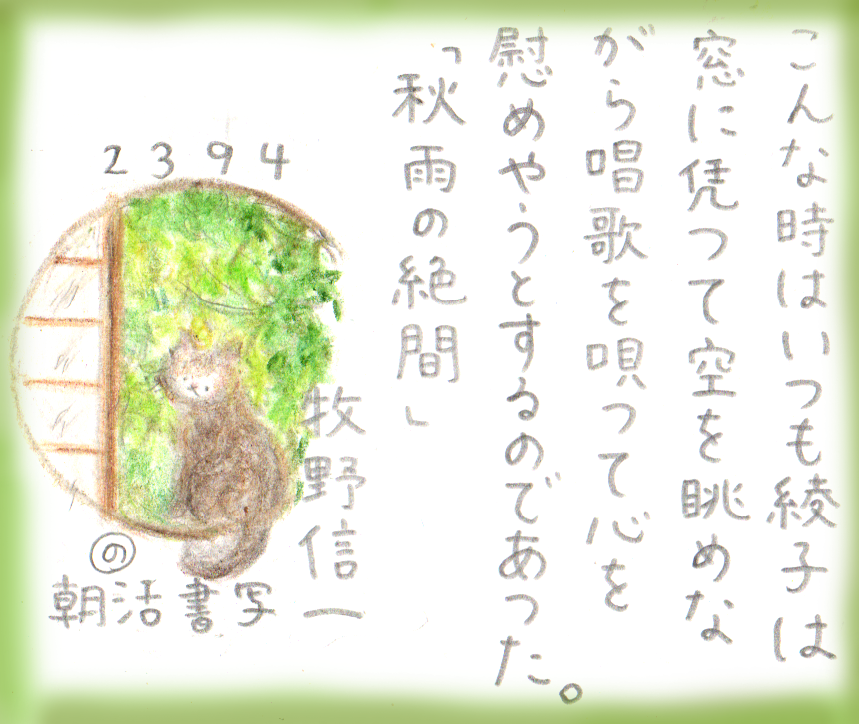 こんな時はいつも綾子は
窓に凭つて空を眺めな
がら唱歌を唄つて心を
慰めやうとするのであつた。
「秋雨の絶間」
牧野信一
2394
の
朝活書写